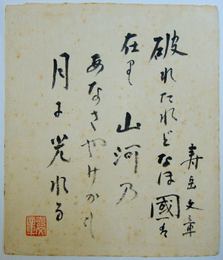 寿岳文章
破れたれどなほ國は
在り 山河乃
あなさやけかも
月に荒れる